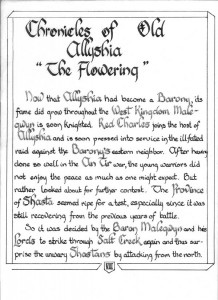 Chronicles of Old
Allyshia
"The Flowering"
Now that Allyshia had become a Barony, its
fame did grow throughout the West Kingdom. Male-
gwyn is soon knighted. Red Charles joins the host of
Allyshia and is soon pressed into service in the ill fated
raid against the Barony's eastern neighbor. After having
done so well in the An Tir war, the young warriors did
not enjoy the peace as much as one might expect. But
rather looked about for further contest. The Province
of Shasta seemed ripe for a test, especially since it was
still recovering from the previous years of battle.
So it was decided by the Baron Malegwyn and his
Lords to strike through Salt Creek again and thus sur-
prise the unwary Shastans by attacking from the north.